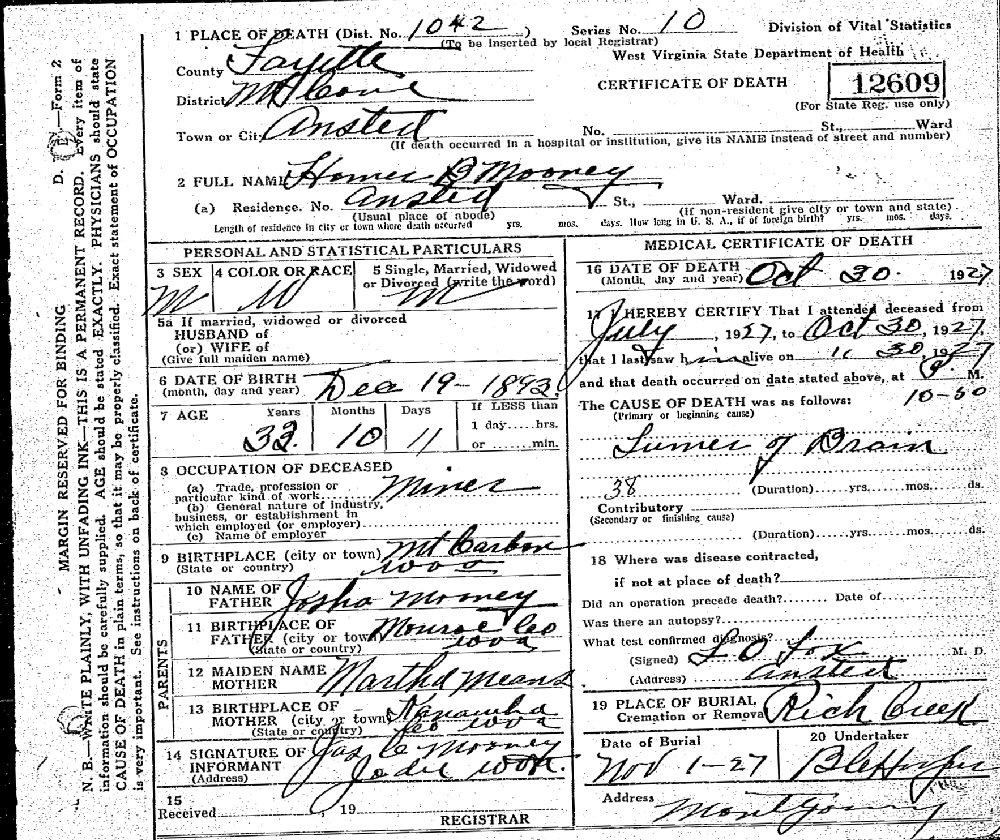 1 PLACE OF DEATH (Dist. No. 1042 ) Series No. 10 Division of Vital Statistics
(To be inserted by local Registrar) West Virginia State Department of Health
County Fayette CERTIFICATE OF DEATH 12609
District Mt Cove (For State Reg. use only)
Town or City Ansted No. St., Ward
(If death occurred in a hospital or institution, give its NAME instead of street and number)
2 FULL NAME Homer B Mooney
(a) Residence. No. Ansted St., Ward.
(Usual place of abode) (If non-resident give city or town and state)
Length of residence in city or town where death occurred yrs. mos. days. How long in U. S. A., if of foreign birth? yrs. mos. days.
PERSONAL AND STATISTICAL PARTICULARS
3 SEX 4 COLOR OR RACE 5 Single, Married, Widowed
or Divorced (write the word)
M W M
5a If married, widowed or divorced
HUSBAND of
(or) WIFE of
(Give full maiden name)
6 DATE OF BIRTH
(month, day and year) Dec 19 - 1893
7 AGE Years Months Days If LESS than
1 day.....hrs.
33 10 11 or ..... min.
8 OCCUPATION OF DECEASED
(a) Trade, profession or
particular kind of work Miner
(b) General nature of industry,
business, or establishment in
which employed (or employer)
(c) Name of employer
9 BIRTHPLACE (city or town) Mt Carbon
(State or country) W Va
PARENTS
10 NAME OF
FATHER Josha Mooney
11 BIRTHPLACE OF
FATHER (city or town) Monroe Co
(State or country) W Va
12 MAIDEN NAME
MOTHER Martha Means
13 BIRTHPLACE OF
MOTHER (city or town) Kanawha
(State or country) Co W Va
14 SIGNATURE OF
INFORMANT Jas C Mooney
(Address) Jodie W Va.
15
Received , 19
REGISTRAR
MEDICAL CERTIFICATE OF DEATH
16 DATE OF DEATH
(Month, day and year) Oct 30. 1927
17 I HEREBY CERTIFY That I attended deceased from
July , 1927, to Oct 30, 1927
that I last saw him alive on " 30, 1927
and that death occurred on date stated above, at P. M.
The CAUSE OF DEATH was as follows: 10-50
(Primary or beginning cause)
Tumer of Brain
38 (Duration)......yrs......mos......ds.
Contributory
(Secondary or finishing cause)
(Duration)......yrs......mos......ds.
18 Where was disease contracted,
if not at place of death?
Did an operation precede death? Date of
Was there an autopsy?
What test confirmed diagnosis?
(Signed) L O Fox M. D.
(Address) Ansted
19 PLACE OF BURIAL,
Cremation or Removal Rich Creek
Date of Burial 20 Undertaker
Nov 1-27
Address Montgomery
MARGIN RESERVED FOR BINDING D. E.—Form 2
N. B.—WRITE PLAINLY, WITH UNFADING INK—THIS IS A PERMANENT RECORD. Every item of
information should be carefully supplied. AGE should be stated EXACTLY. PHYSICIANS should state
CAUSE OF DEATH in plain terms, so that it may be properly classified. Exact statement of OCCUPATION
is very important. See instructions on back of certificate.